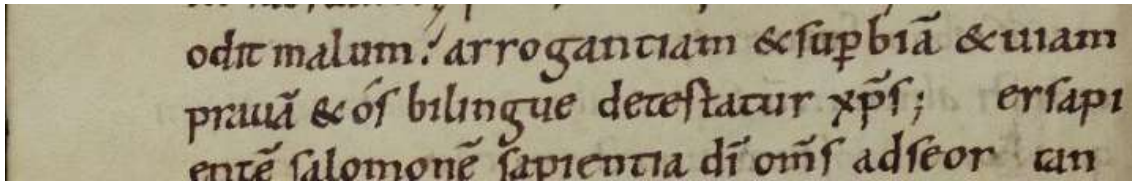 odit malum. arrogantiam &sup̲biā &uiam
prauā & ós bilingue detestatur xp̄s; ersapi
entē salomonē sapientia dī om̄s adseor tan